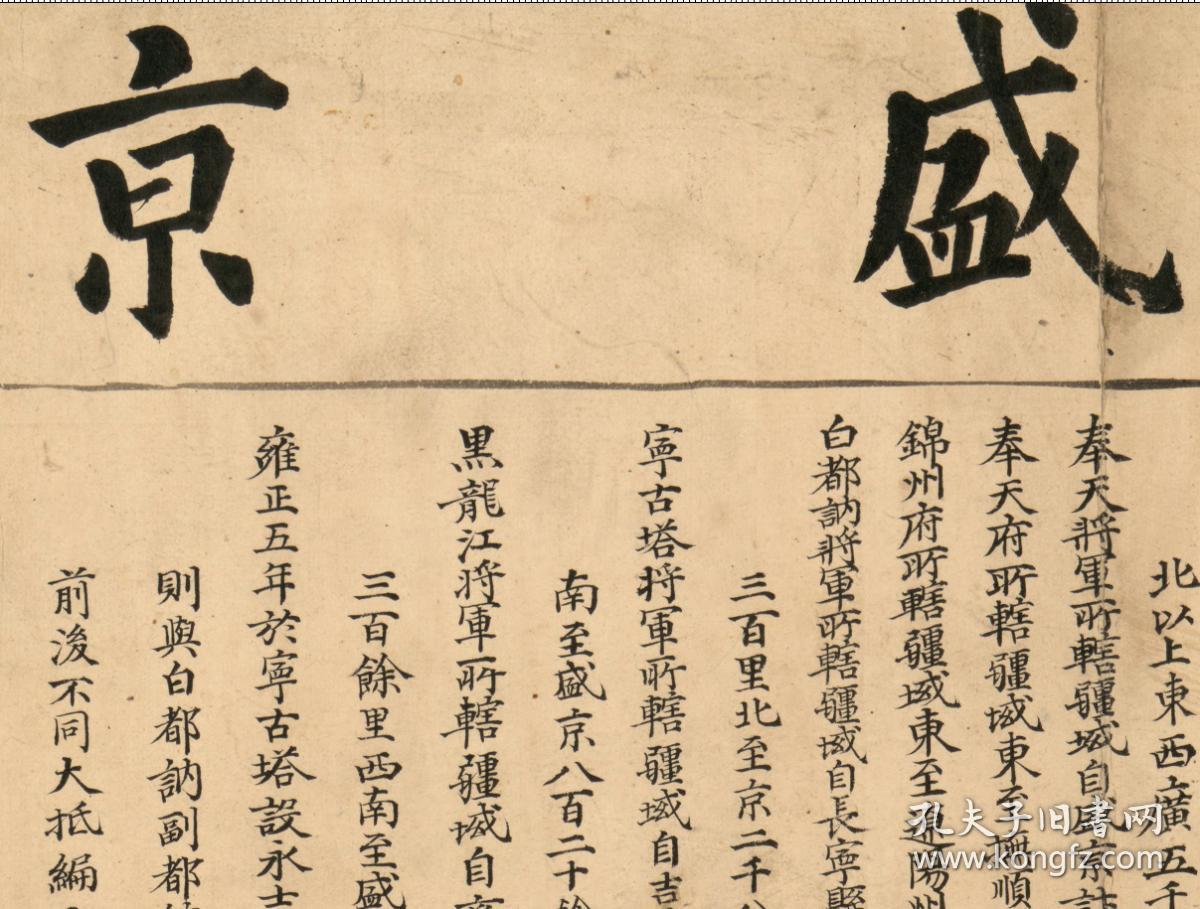 盛京
北以上東西廣五千
奉天將軍所轄疆域自盛京
奉天府所轄疆域東至撫順
錦州府所轄疆域東至遼陽州
白都訥將軍所轄疆域自長寧縣
三百里北至京二千
寧古塔將軍所轄疆域自吉
南至盛京八百二十餘
黑龍江將軍所轄疆域自齊
三百餘里西南至盛
雍正五年於寧古塔設永吉
則與白都訥副都
前後不同大抵編
孔夫子旧书网
www.kongfz.com